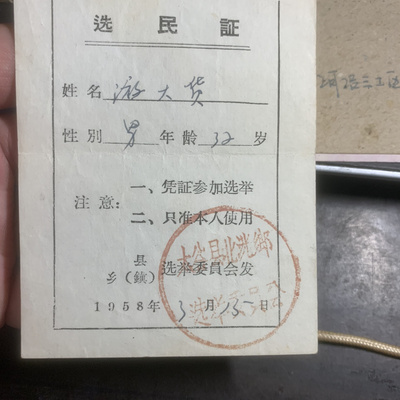 选民証
姓名 游大货
性别 男 年龄 32 岁
注意：
一、凭証参加选举
二、只准本人使用
县
乡(鎮)
选举委員会发
1958年 3月15日